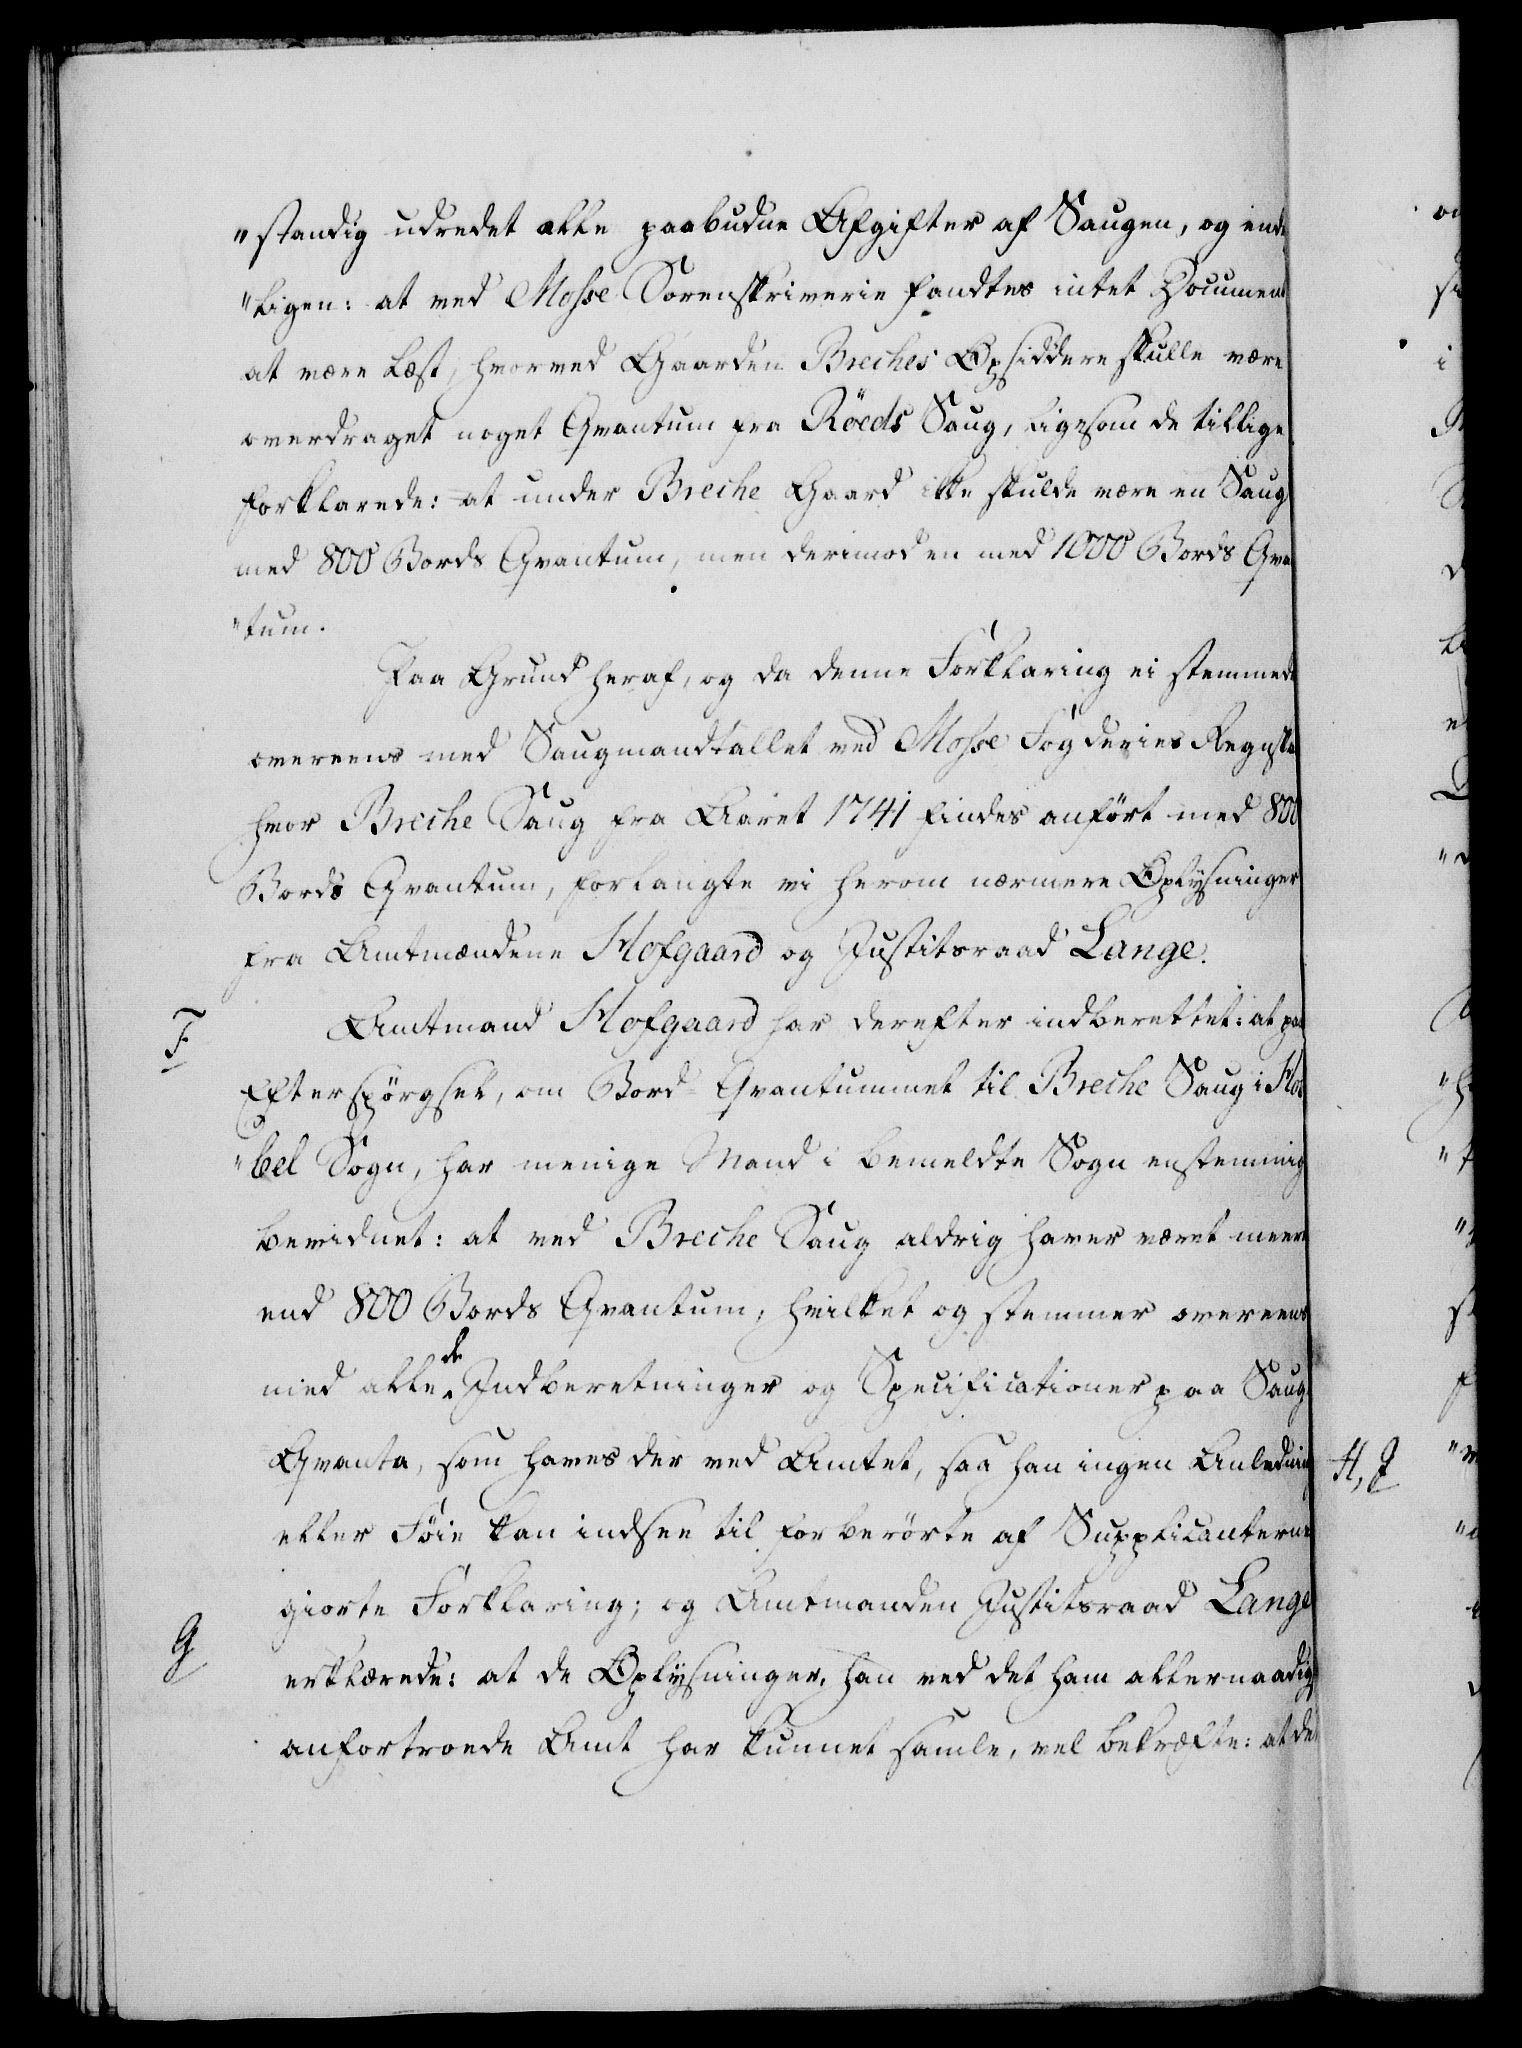 "standig udredet alle paabudne Afgifter af Saugen, og ende
"ligen: at ved Mosse Sorenskriverie fandtes intet Document
at være læst, hvorved Gaarden Breches Opsiddere skulle være
overdraget noget Qvantum fra Röeds Saug, ligesom de tillige
forklarede: at under Breche Gaard ikke skulde være en Saug
med 800 Bords Qvantum, men derimod en med 1000 Bords Qvan
"tum.
Paa Grund heraf, og da denne Forklaring ei stemmede
overeens med Saugmandtallet ved Mosse Fogderies Regnskab
hvor Breche Saug fra Aaret 1741 findes anført med 800
Bords Qvantum, forlangte vi herom nærmere Oplysninger
fra Amtmændene Hofgaard og Justitsraad Lange.
F
Amtmand Hofgaard har derefter indberettet: at paa
Efterspörgsel, om Bord-Qvantummet til Breche Saug i Hoe
"bel Sogn, har menige Mand i bemeldte Sogn enstemmig
bevidnet: at ved Breche Saug aldrig haver været meere
end 800 Bords Qvantum, hvilket og stemmer overeens
med alle de Indberetninger og Specificationer paa Saug
Qvanta, som haves der ved Amtet, saa han ingen Anledning
eller Føie kan indsee til forberörte af Supplicanterne
giorte Forklaring; og Amtmanden Justitsraad Lange
G
erklærede: at de Oplysninger, han ved det ham allernaadigst
anfortroede Amt har kunnet samle, vel bekræfte: at de
H, J